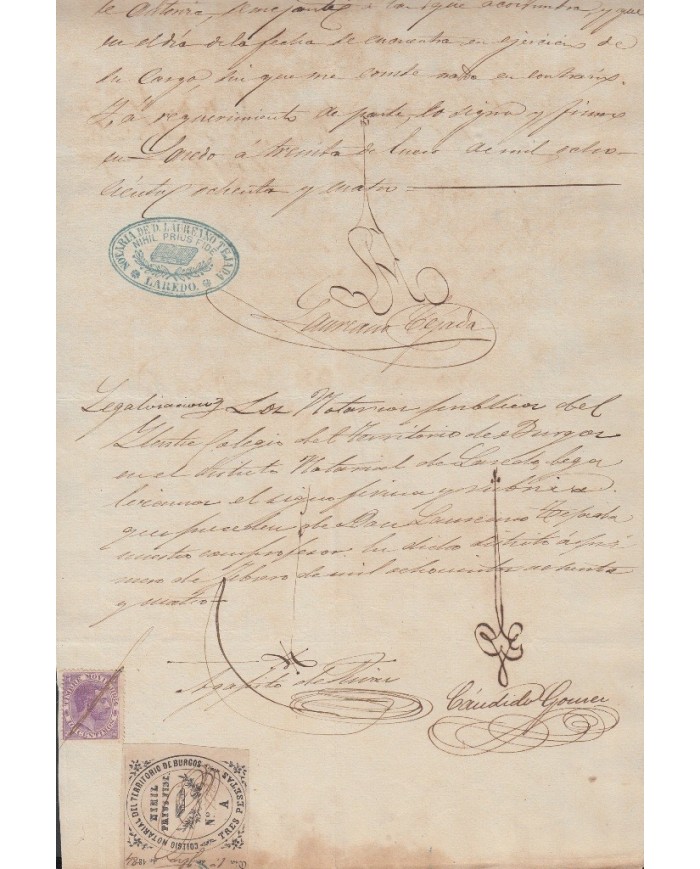 de Antonia, semejante a la que acostumbra, y que
en el dia de la fecha se encuentra en ejercicio de
su cargo, sin que me conste nada en contrario.
Y, a requerimiento de parte, lo signo y firmo
en Laredo á treinta de Enero de mil ocho-
cientos ochenta y cuatro
NOTARIA DE D. LAUREANO TEJADA
NIHIL PRIUS FIDE
LAREDO.
Laureano Tejada
Legalizacion Los Notarios publicos del
Ilustre Colegio del Territorio de Burgos
en el distrito Notarial de Laredo, lega
lizamos el signo firma y rubrica
que preceden de Don Laureano Tejada
nuestro comprofesor. En dicho distrito á pri
mero de Febrero de mil ochocientos ochenta
y cuatro
Agapito de
Cándido Gomez
TIMBRE MOVIL
10 CENTIMOS
COLEGIO NOTARIAL DEL TERRITORIO DE BURGOS
NIHIL
PRIUS FIDE
Nº A
TRES PESETAS